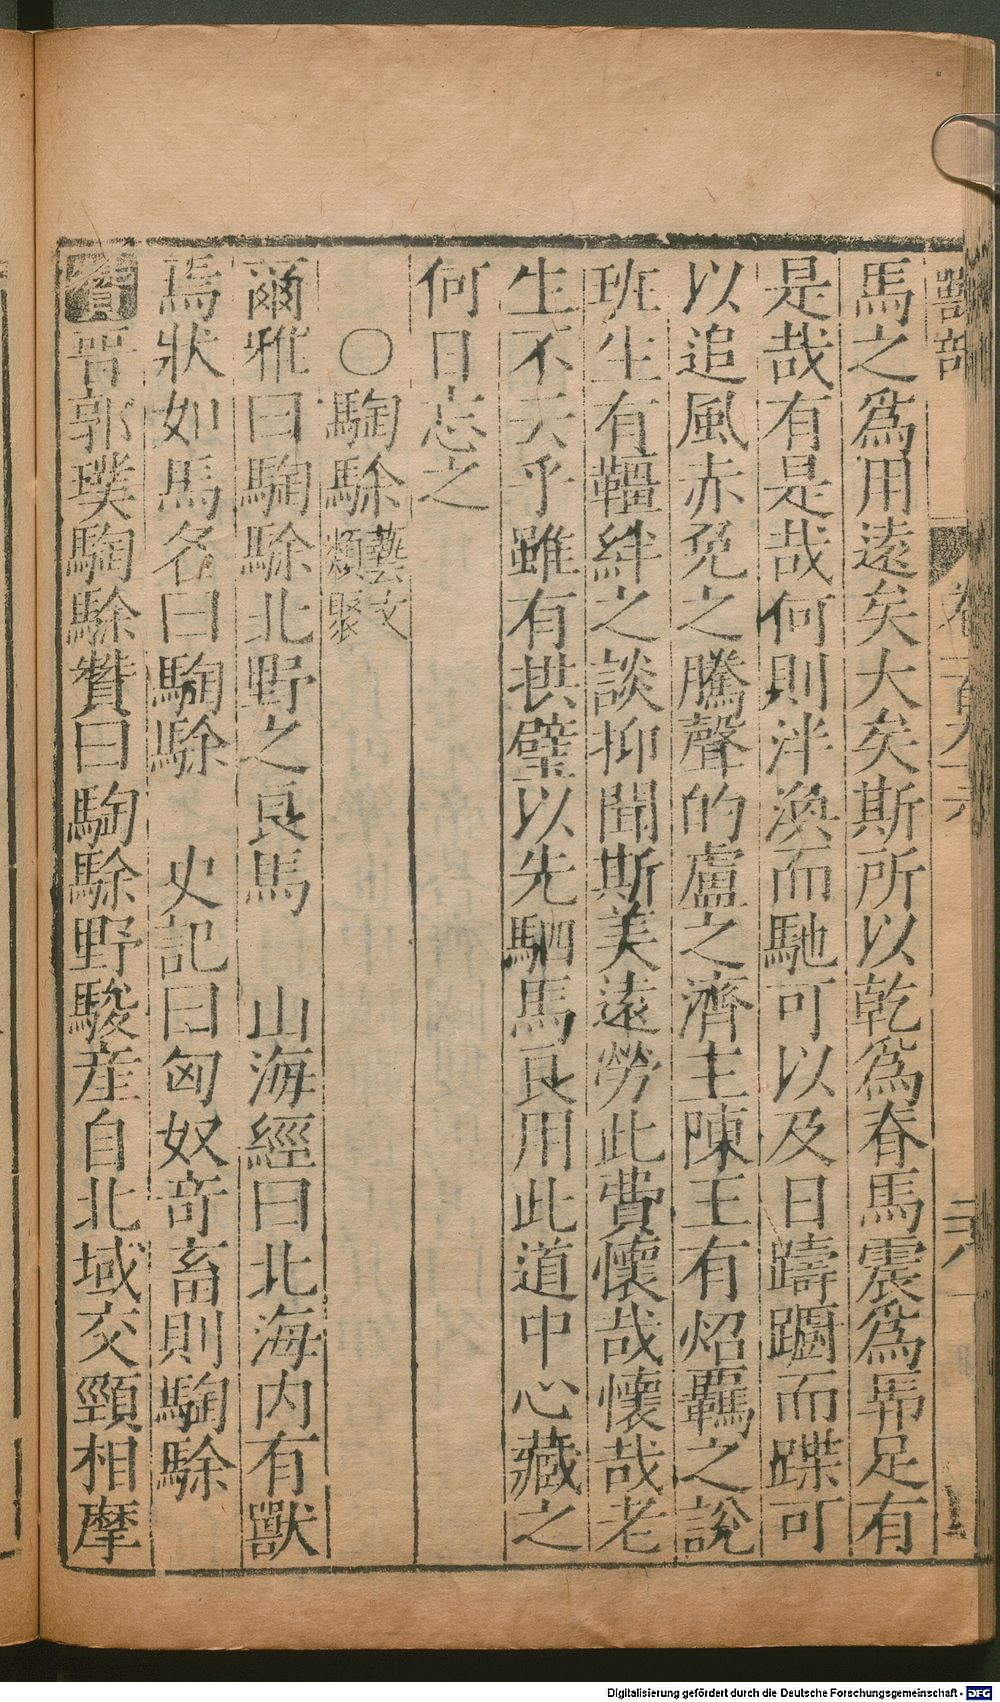 獸部 卷一百九十六 二六
馬之爲用遠矣大矣斯所以乾爲春馬震爲馵足有
是哉有是哉何則泮渙而馳可以及日躊躕而蹀可
以追風赤兔之騰聲的盧之濟主陳王有炤羈之說
班生有韁絆之談抑聞斯美遠勞此費懷哉懷哉老
生不夭乎雖有拱璧以先駟馬良用此道中心藏之
何日忘之
〇騊駼藝文類聚
爾雅曰騊駼北野之良馬 山海經曰北海内有獸
焉狀如馬名曰騊駼 史記曰匈奴奇畜則騊駼
贊晋郭璞騊駼贊曰騊駼野駿産自北域交頸相摩
Digitalisierung gefördert durch die Deutsche Forschungsgemeinschaft - DFG